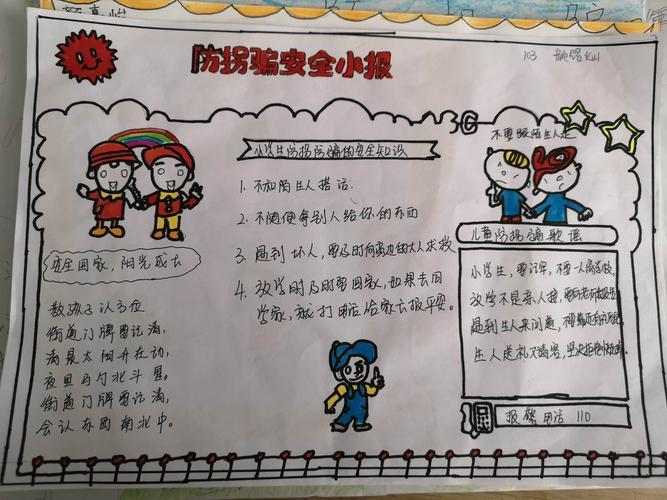 防拐骗安全小报
103
小学生防拐防骗的安全知识
1. 不和陌生人搭话.
2. 不随便拿别人给你的东西
3. 遇到坏人，要及时向周边的大人求救
4. 放学时及时要回家，如果去同
学家，就打电话给家长报平安。
安全回家，阳光成长
教孩子认方位
街道门牌要记清，
清晨太阳升在动，
夜里勺北斗星，
街道门牌要记清，
会认东西南北中。
不要跟陌生人走
儿童防拐骗歌谣
小学生，要记牢，不要一人离学校，
放学不是亲人接，
遇到生人来问道，
生人送礼又请客，坚决拒绝
报警电话 110